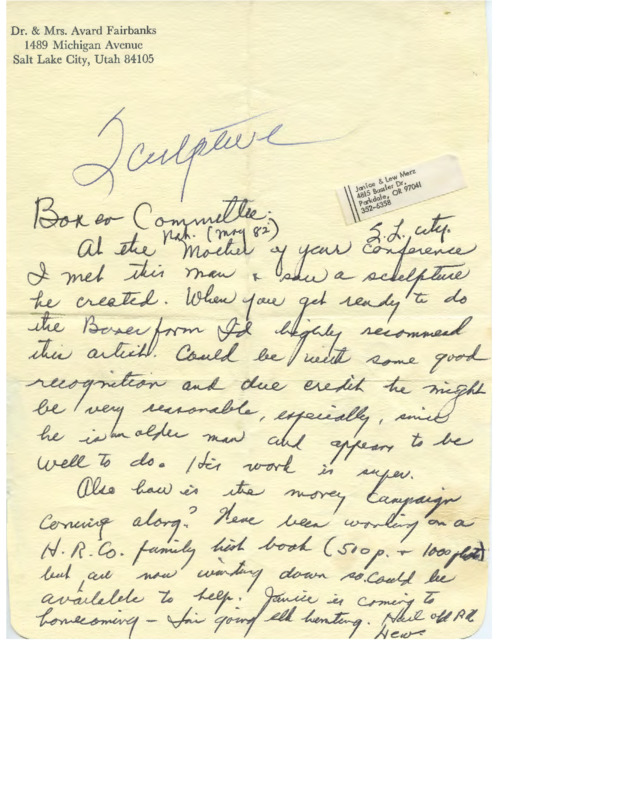 Dr. & Mrs. Avard Fairbanks
1489 Michigan Avenue
Salt Lake City, Utah 84105
Sculpture
Janice & Lew Merz
4815 Baseler Dr.
Parkdale, OR 97041
352-6358
Boxer Committee:
Nat. (May 82) S.L. City.
At the Mother of year Conference
I met this man & saw a sculpture
he created. When you get ready to do
the Boxer form I'd highly recommend
this artist. Could be with some good
recognition and due credit he might
be very reasonable, especially, since
he is an older man and appears to be
well to do. His work is super.
Also how is the money Campaign
coming along? Have been working on a
H. R. Co. family hist book (500 p. + 1000 )
but are now winding down so could be
available to help. Janice is coming to
homecoming – I'm going elk hunting. Hail old P.U.
Lew